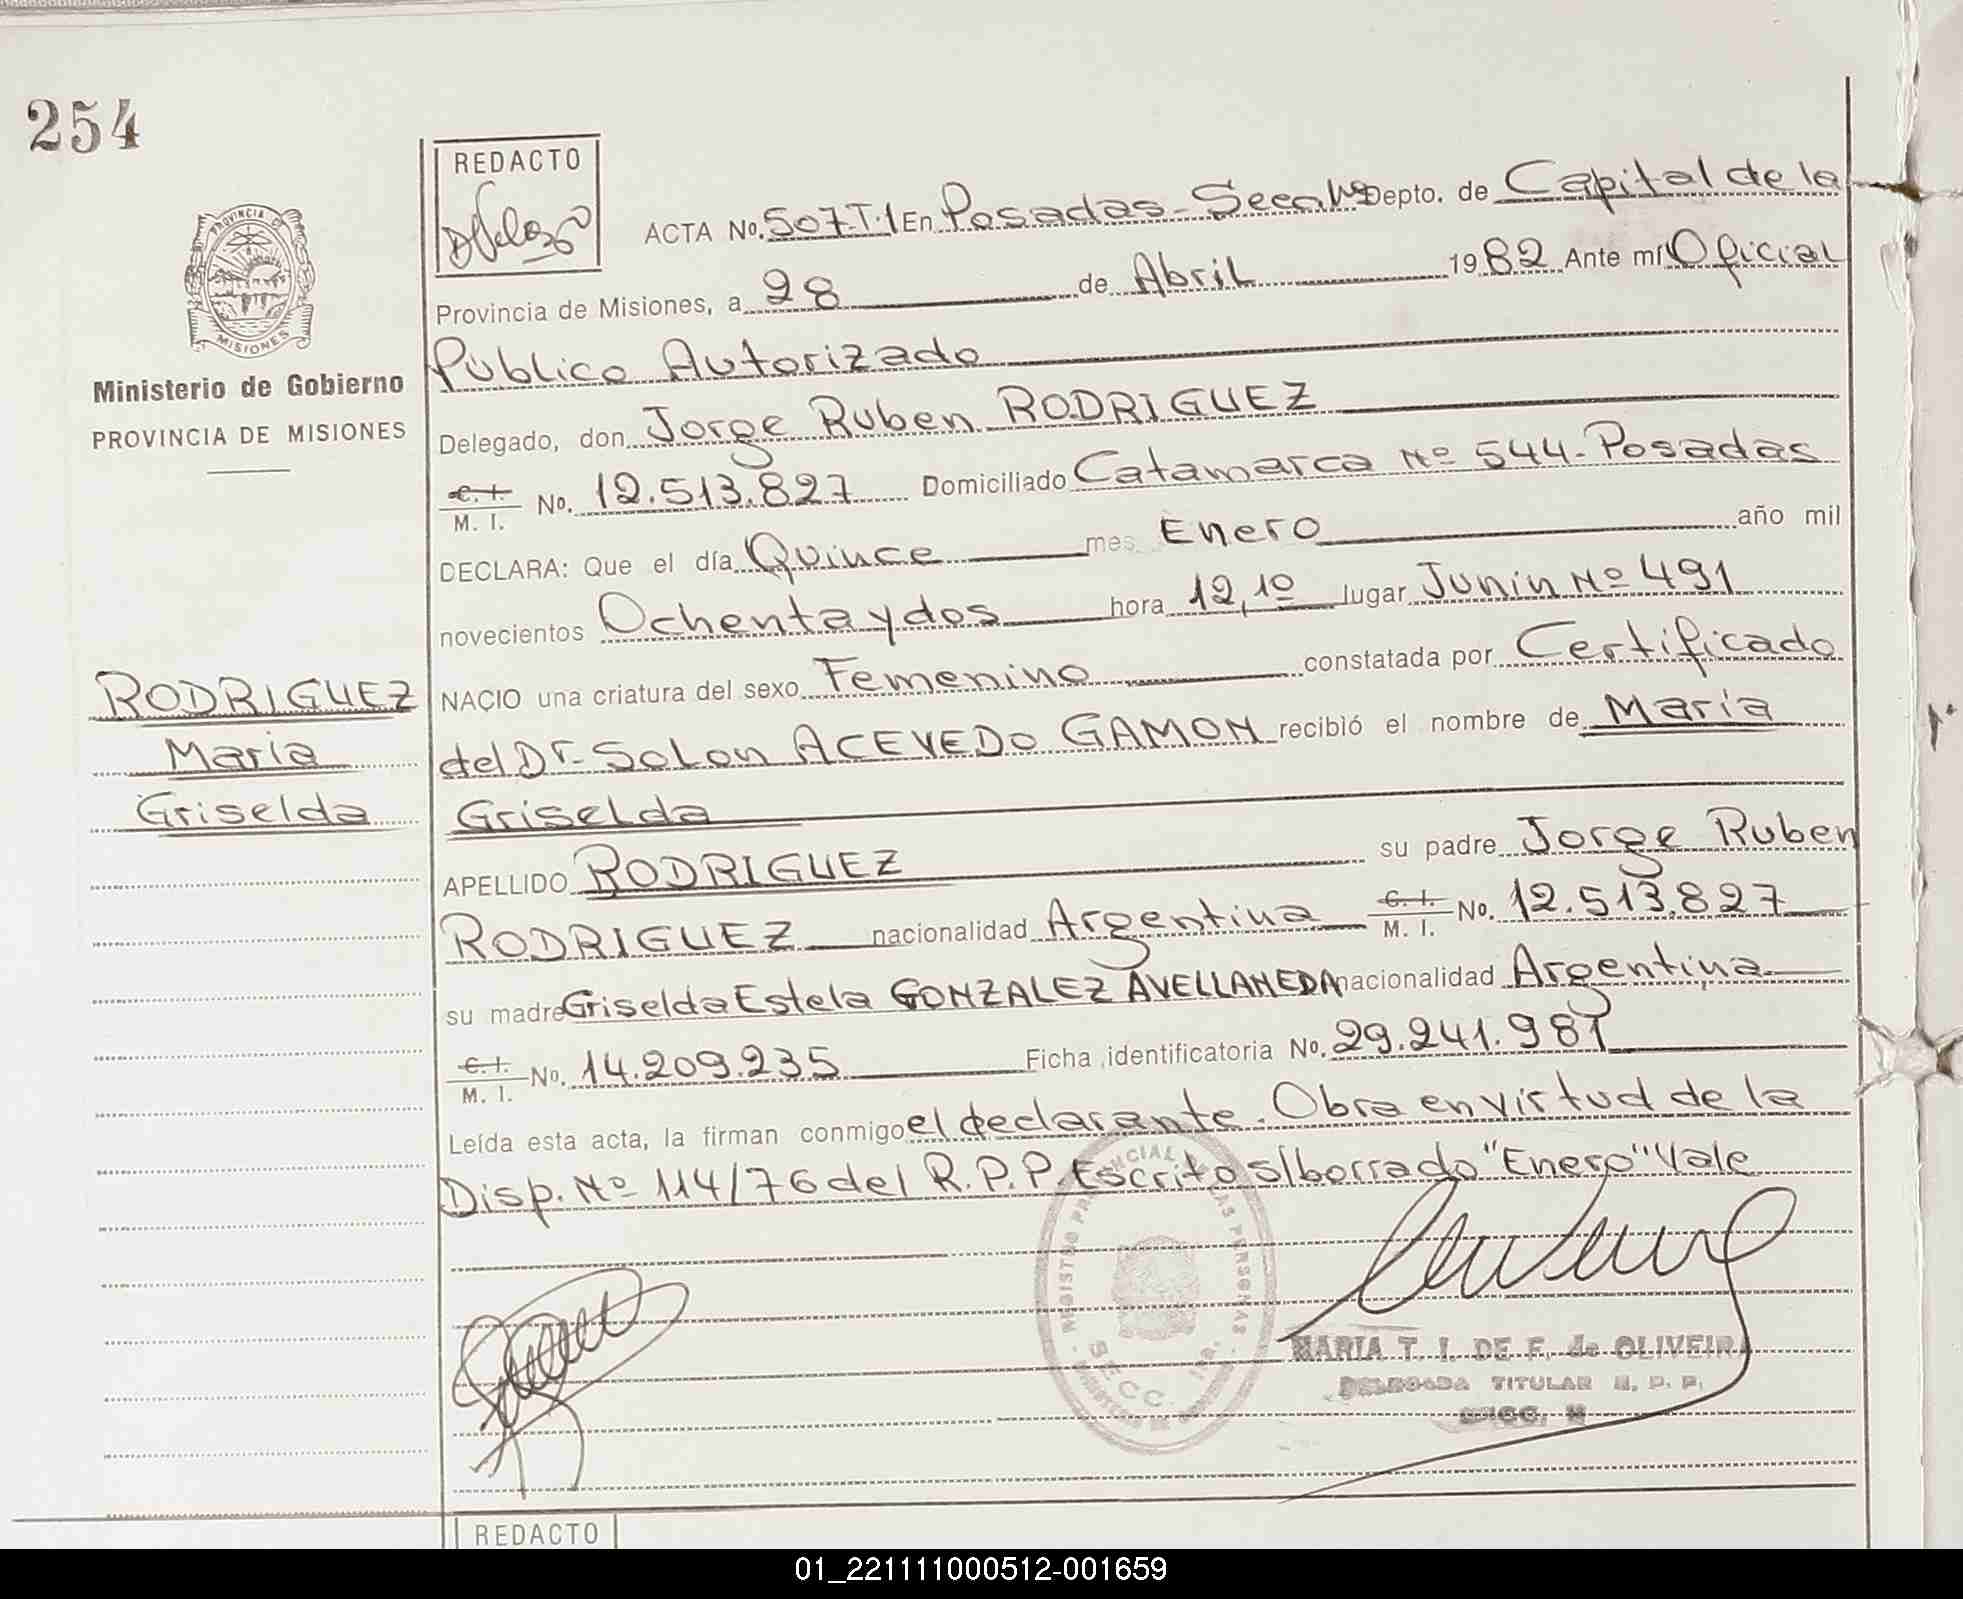 254
REDACTO
PROVINCIA DE
MISIONES
Ministerio de Gobierno
PROVINCIA DE MISIONES
RODRIGUEZ
Maria
Griselda
ACTA No. 507.T.1 En Posadas - Depto. de Capital de la
Provincia de Misiones, a 28 de Abril 1982 Ante mí Oficial
Público Autorizado
Delegado, don Jorge Ruben RODRIGUEZ
C. I. / M. I. No. 12.513.827 Domiciliado Catamarca Nº 544 - Posadas
DECLARA: Que el día Quince mes Enero año mil
novecientos Ochenta y dos hora 12,10 lugar Junín Nº 491
NACIO una criatura del sexo Femenino constatada por Certificado
del Dr. Solon ACEVEDO GAMON recibió el nombre de María
Griselda
APELLIDO RODRIGUEZ su padre Jorge Ruben
RODRIGUEZ nacionalidad Argentina C. I. / M. I. No. 12.513.827
su madre Griselda Estela GONZALEZ AVELLANEDA nacionalidad Argentina
C. I. / M. I. No. 14.209.235 Ficha identificatoria No. 29.241.981
Leída esta acta, la firman conmigo el declarante. Obra en virtud de la
Disp. Nº 114/76 del R.P.P. Escrito s/borrado "Enero" Vale
MARIA T. I. DE F. de OLIVEIRA
DELEGADA TITULAR R. P. P.
REDACTO
01_221111000512-001659